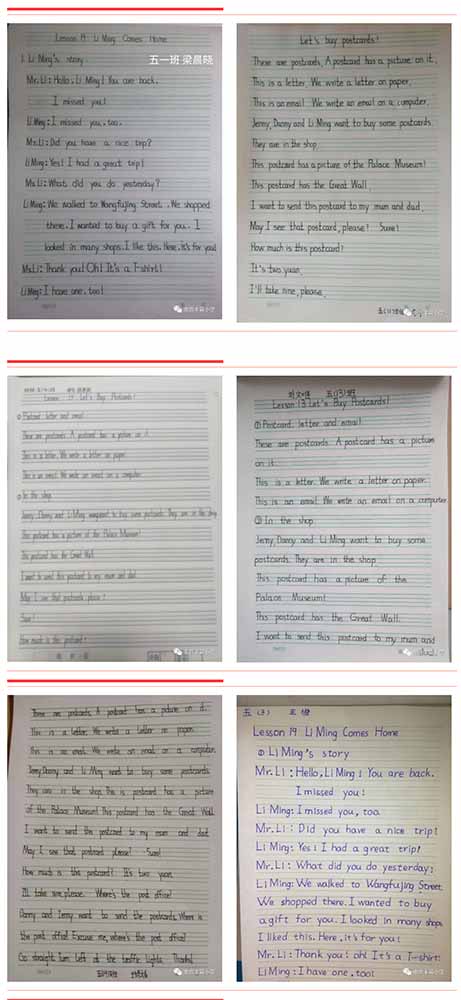 Lesson 19 Li Ming Comes Home
五一班 梁晨晓
1. Li Ming's story
Mr.Li: Hello, Li Ming! You are back.
I missed you!
Li Ming: I missed you, too.
Ms.Li: Did you have a nice trip?
Li Ming: Yes! I had a great trip!
Ms.Li: What did you do yesterday?
Li Ming: We walked to Wangfujing Street. We shopped
there. I wanted to buy a gift for you. I
looked in many shops. I like this. Here, it's for you!
Ms.Li: Thank you! Oh! It's a T-shirt!
Li Ming: I have one, too!
Let's buy postcards!
These are postcards. A postcard has a picture on it.
This is a letter. We write a letter on paper.
This is an email. We write an email on a computer.
Jenny, Danny and Li Ming want to buy some postcards.
They are in the shop.
This postcard has a picture of the Palace Museum!
This postcard has the Great Wall.
I want to send this postcard to my mum and dad.
May I see that postcard, please! Sure!
How much is this postcard?
It's two yuan.
I'll take nine, please.
Lesson 13 Let's Buy Postcards!
① Postcard, letter and email
These are postcards. A postcard has a picture on it.
This is a letter. We write a letter on paper.
This is an email. We write an email on a computer.
② In the shop
Jenny, Danny and Li Ming want to buy some postcards. They are in the shop.
This postcard has a picture of the Palace Museum!
This postcard has the Great Wall.
I want to send this postcard to my mum and dad.
May I see that postcard, please?
Sure!
How much is this postcard?
五(3)班
Lesson 13 Let's Buy Postcards!
① Postcard, letter and email
These are postcards. A postcard has a picture
on it.
This is a letter. We write a letter on paper.
This is an email. We write an email on a computer
② In the shop
Jenny, Danny and Li Ming want to buy some
postcards. They are in the shop.
This postcard has a picture of the
Palace Museum!
This postcard has the Great Wall.
I want to send this postcard to my mum and
dad.
These are postcards. A postcard has a picture on it.
This is a letter. We write a letter on paper.
This is an email. We write an email on a computer.
Jenny, Danny and Li Ming want to buy some postcards.
They are in the shop. This is postcard has a picture
of the Palace Museum! This postcard has the Great Wall.
I want to send the postcard to my mum and dad.
May I see that postcard, please? Sure!
How much is this postcard? It's two yuan.
I'll take nine, please. Where's the post office?
Danny and Jenny want to send the postcards. Where is
the post office? Excuse me, where's the post office?
Go straight turn left at the traffic lights. Thanks!
五 (3) 王煜
Lesson 19 Li Ming Comes Home
① Li Ming's story
Mr.Li: Hello, Li Ming! You are back.
I missed you!
Li Ming: I missed you, too.
Mr.Li: Did you have a nice trip!
Li Ming: Yes! I had a great trip!
Mr.Li: What did you do yesterday;
Li Ming: We walked to Wangfujing Street.
We shopped there. I wanted to buy
a gift for you. I looked in many shops
I liked this. Here, it's for you!
Mr.Li: Thank you! oh! It's a T-shirt!
Li Ming: I have one, too!